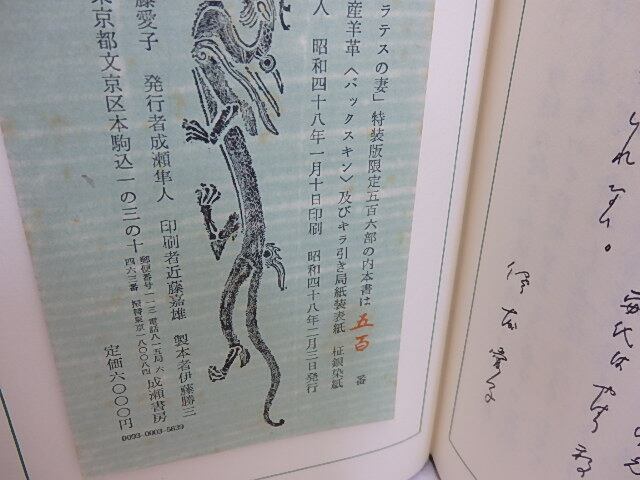 ラテスの妻」特装版限定五百六部の内本書は 五百 番
産羊革〈バックスキン〉及びキラ引き局紙装表紙 柾銀染紙
人 昭和四十八年一月十日印刷 昭和四十八年二月三日発行
藤愛子 発行者成瀬隼人 印刷者近藤嘉雄 製本者伊藤勝三
東京都文京区本駒込一の三の十 郵便番号一一三 電話八一五局六
四六三番 振替東京一八〇〇八四 成瀬書房
定価六〇〇〇円
0093-0003-5639